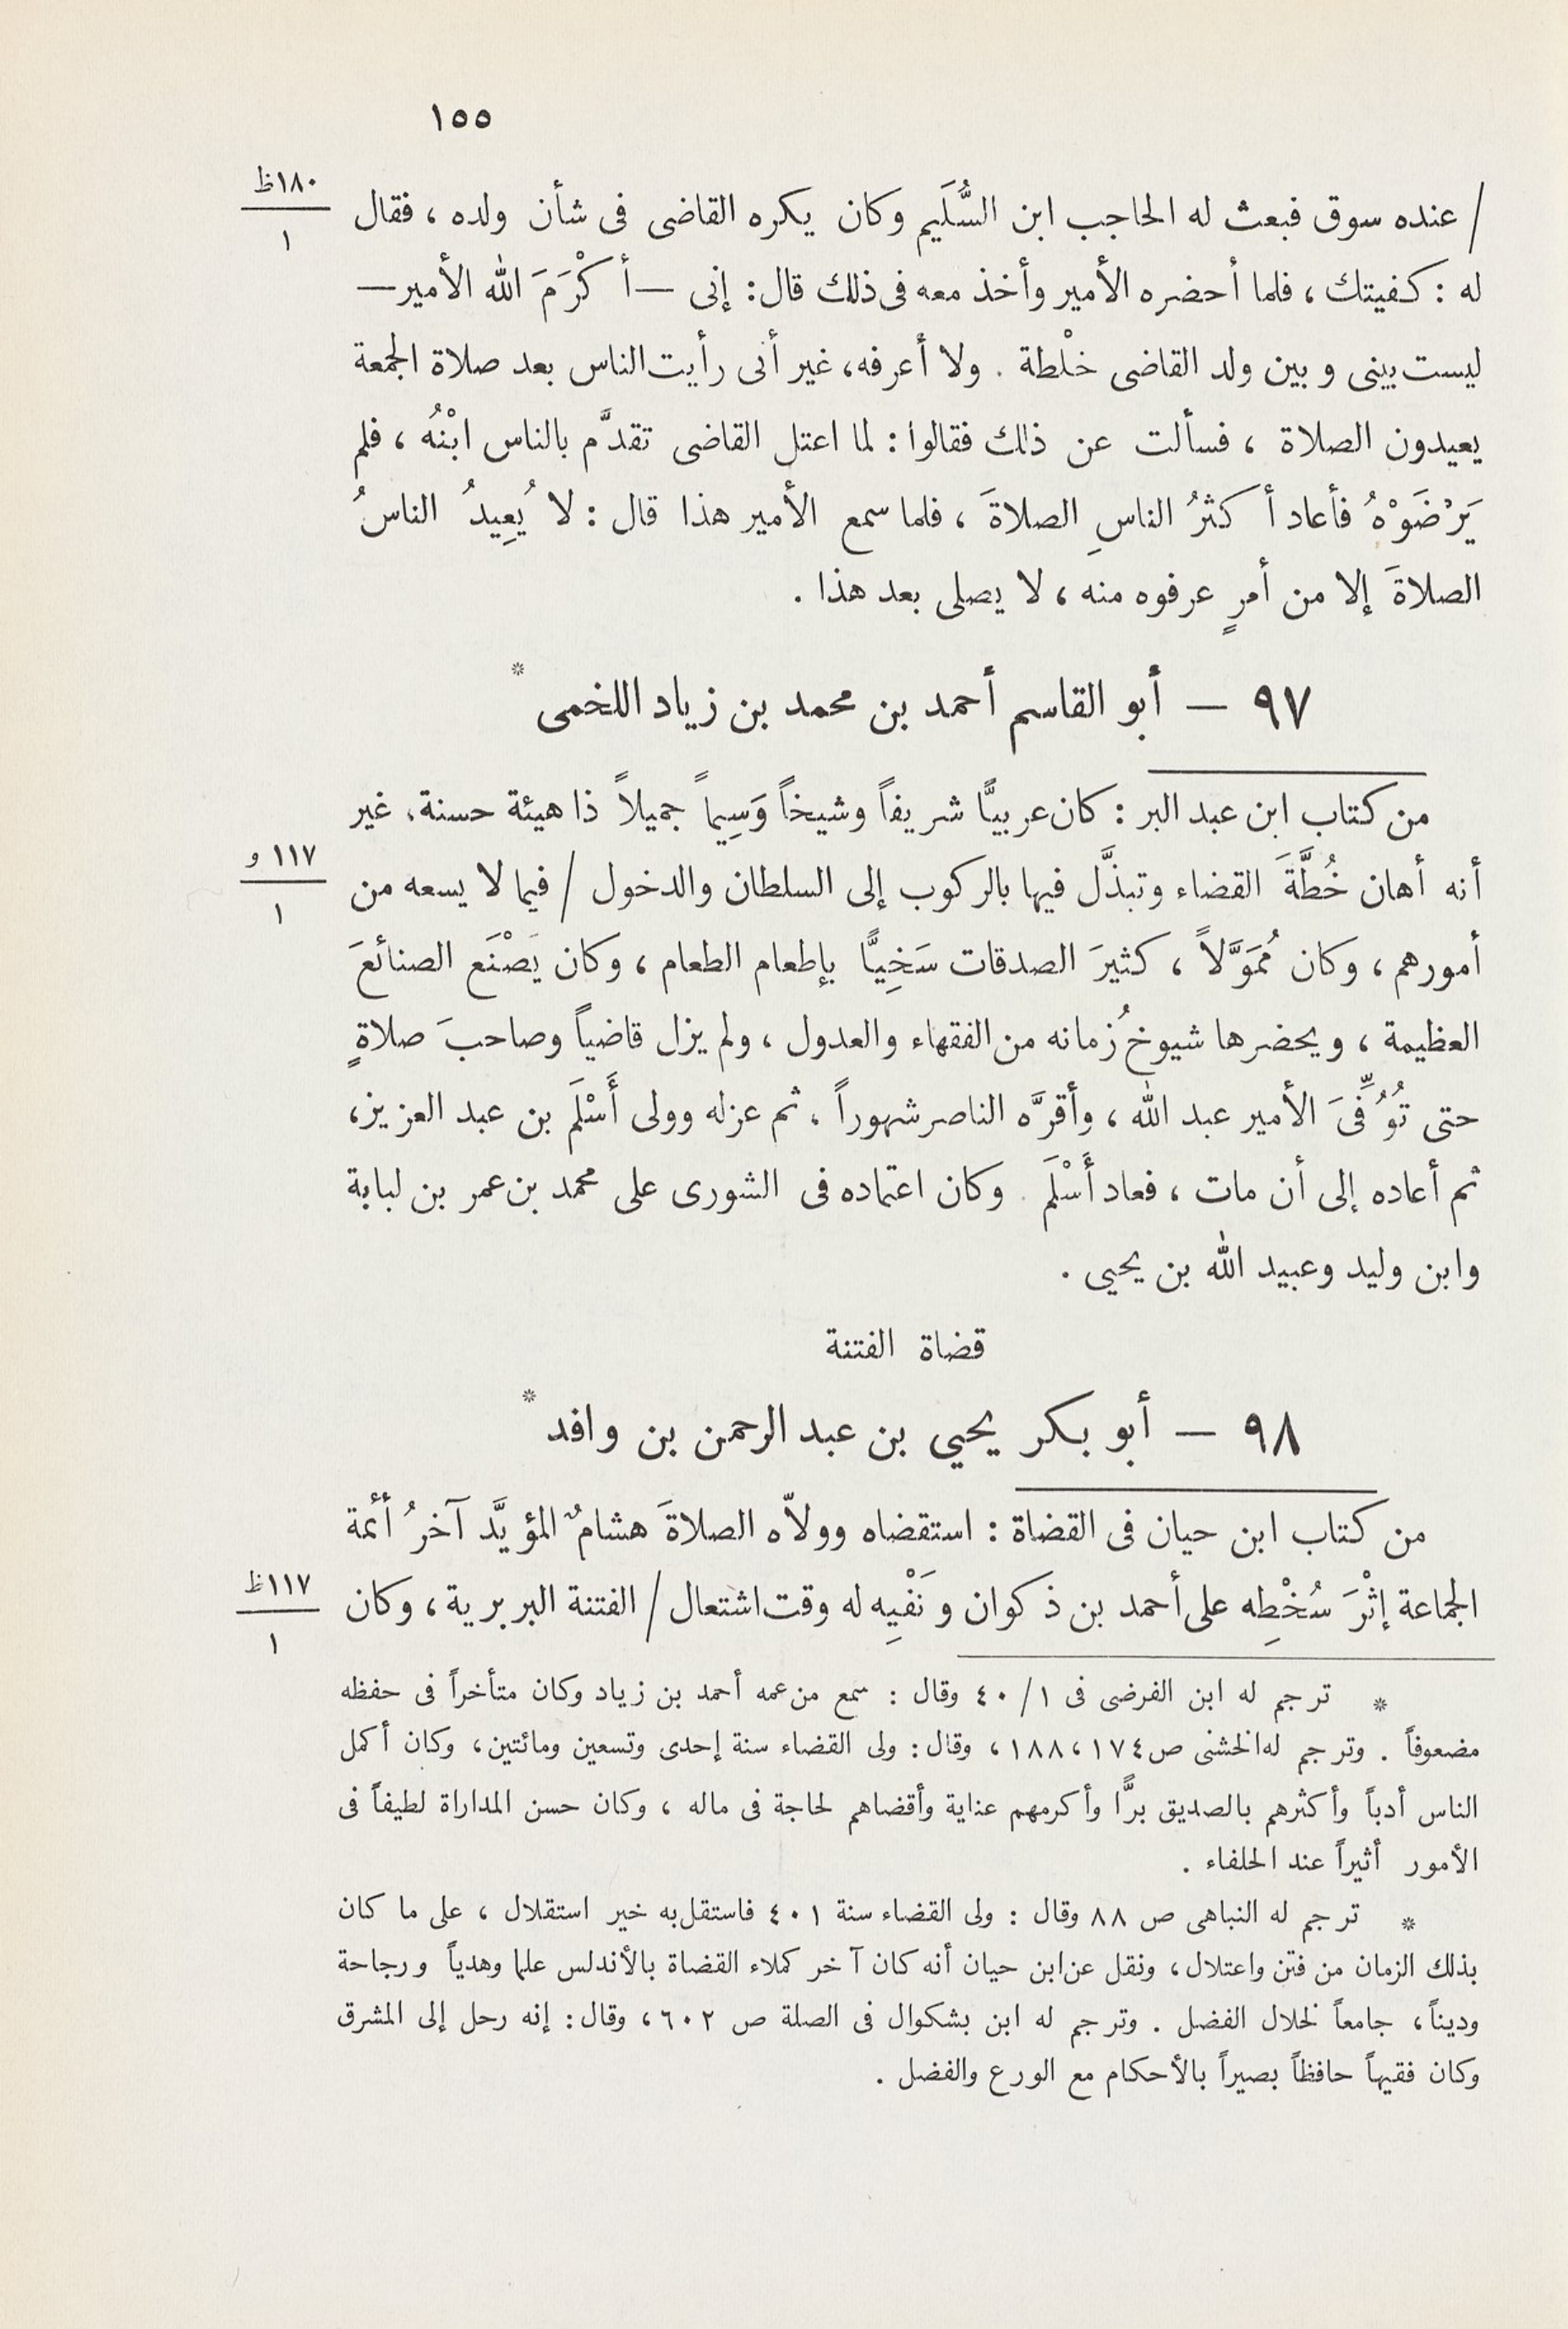 ١٥٥
١٨٠ظ
١
/ عنده سوق فبعث له الحاجب ابن السُّلَيم وكان يكره القاضى فى شأن ولده ، فقال
له : كفيتك ، فلما أحضره الأمير وأخذ معه فى ذلك قال : إنى — أكْرَمَ الله الأمير —
ليست بينى وبين ولد القاضى خلْطة . ولا أعرفه، غير أنى رأيت الناس بعد صلاة الجمعة
يعيدون الصلاة ، فسألت عن ذلك فقالوا : لما اعتل القاضى تقدَّم بالناس ابْنُه ، فلم
يَرْضَوْهُ فأعاد أكثرُ الناسِ الصلاةَ ، فلما سمع الأمير هذا قال : لا يُعِيدُ الناسُ
الصلاةَ إلا من أمرٍ عرفوه منه ، لا يصلى بعد هذا .
٩٧ — أبو القاسم أحمد بن محمد بن زياد اللخمى *
من كتاب ابن عبد البر : كان عربيًّا شريفاً وشيخاً وَسِيماً جميلاً ذا هيئة حسنة، غير
١١٧ و
١
أنه أهان خُطَّةَ القضاء وتبذَّل فيها بالركوب إلى السلطان والدخول / فيما لا يسعه من
أمورهم ، وكان مُمَوَّلاً ، كثيرَ الصدقات سَخِيًّا بإطعام الطعام ، وكان يَصْنَع الصنائعَ
العظيمة ، ويحضرها شيوخُ زمانه من الفقهاء والعدول ، ولم يزل قاضياً وصاحبَ صلاةٍ
حتى تُوُفِّىَ الأمير عبد الله ، وأقرَّه الناصر شهوراً ، ثم عزله وولى أَسْلَم بن عبد العزيز،
ثم أعاده إلى أن مات ، فعاد أَسْلَم . وكان اعتماده فى الشورى على محمد بن عمر بن لبابة
وابن وليد وعبيد الله بن يحيى .
قضاة الفتنة
٩٨ — أبو بكر يحيي بن عبد الرحمن بن وافد *
من كتاب ابن حيان فى القضاة : استقضاه وولاّه الصلاةَ هشامٌ المؤيَّد آخرُ أئمة
١١٧ظ
١
الجماعة إثْرَ سُخْطِه على أحمد بن ذكوان ونَفْيِه له وقت اشتعال / الفتنة البربرية ، وكان
* ترجم له ابن الفرضى فى ١/ ٤٠ وقال : سمع من عمه أحمد بن زياد وكان متأخراً فى حفظه
مضعوفاً . وترجم له الخشنى ص ١٧٤ ، ١٨٨ ، وقال : ولى القضاء سنة إحدى وتسعين ومائتين ، وكان أكمل
الناس أدباً وأكثرهم بالصديق برًّا وأكرمهم عناية وأقضاهم لحاجة فى ماله ، وكان حسن المداراة لطيفاً فى
الأمور أثيراً عند الخلفاء .
* ترجم له النباهى ص ٨٨ وقال : ولى القضاء سنة ٤٠١ فاستقل به خير استقلال ، على ما كان
بذلك الزمان من فتن واعتلال ، ونقل عن ابن حيان أنه كان آخر كملاء القضاة بالأندلس علما وهدياً ورجاحة
وديناً ، جامعاً لخلال الفضل . وترجم له ابن بشكوال فى الصلة ص ٦٠٢ ، وقال : إنه رحل إلى المشرق
وكان فقيهاً حافظاً بصيراً بالأحكام مع الورع والفضل .